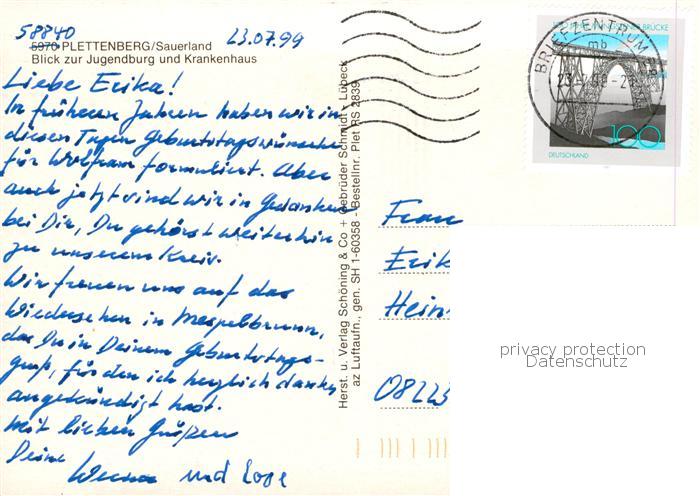 58840
5970 PLETTENBERG/Sauerland
23.07.99
Blick zur Jugendburg und Krankenhaus
Liebe Erika!
In früheren Jahren haben wir in
diesen Tagen Geburtstagswünsche
für Wolfram formuliert. Aber
auch jetzt sind wir in Gedanken
bei Dir, Du gehörst weiterhin
zu unserem Kreis.
Wir freuen uns auf das
Wiedersehen in Mespelbrunn,
das Du in Deinem Geburtstags-
gruß, für den ich herzlich danke,
angekündigt hast.
Mit lieben Grüßen
Deine
und
Herst. u. Verlag Schöning & Co + Gebrüder Schmidt - Lübeck
az Luftaufn., gen. SH 1-60358 - Bestellnr. Plet RS 2839
BRÜCKE
100
DEUTSCHLAND
BRIEFZENTRUM
mb
Frau
Erik
Hein
08223
privacy protection
Datenschutz